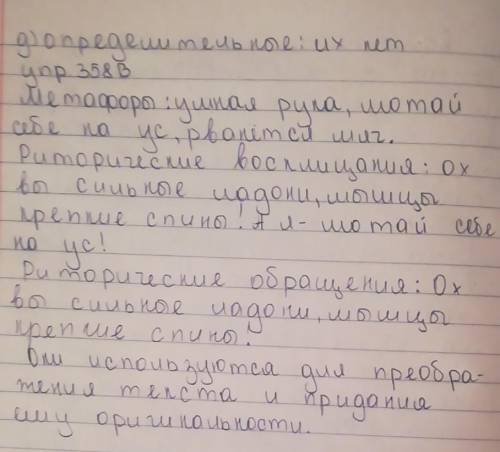 д) определительные: их нет
упр 358В
Метафоры: умная рука, мотай
себе на ус, рванётся миг.
Риторические восклицания: ох
вы сильные ладони, мышцы
крепкие спины! А я - мотай себе
на ус!
Риторические обращения: Ох
вы сильные ладони, мышцы
крепкие спины!
Они используются для преобра-
жения текста и придания
ему оригинальности.